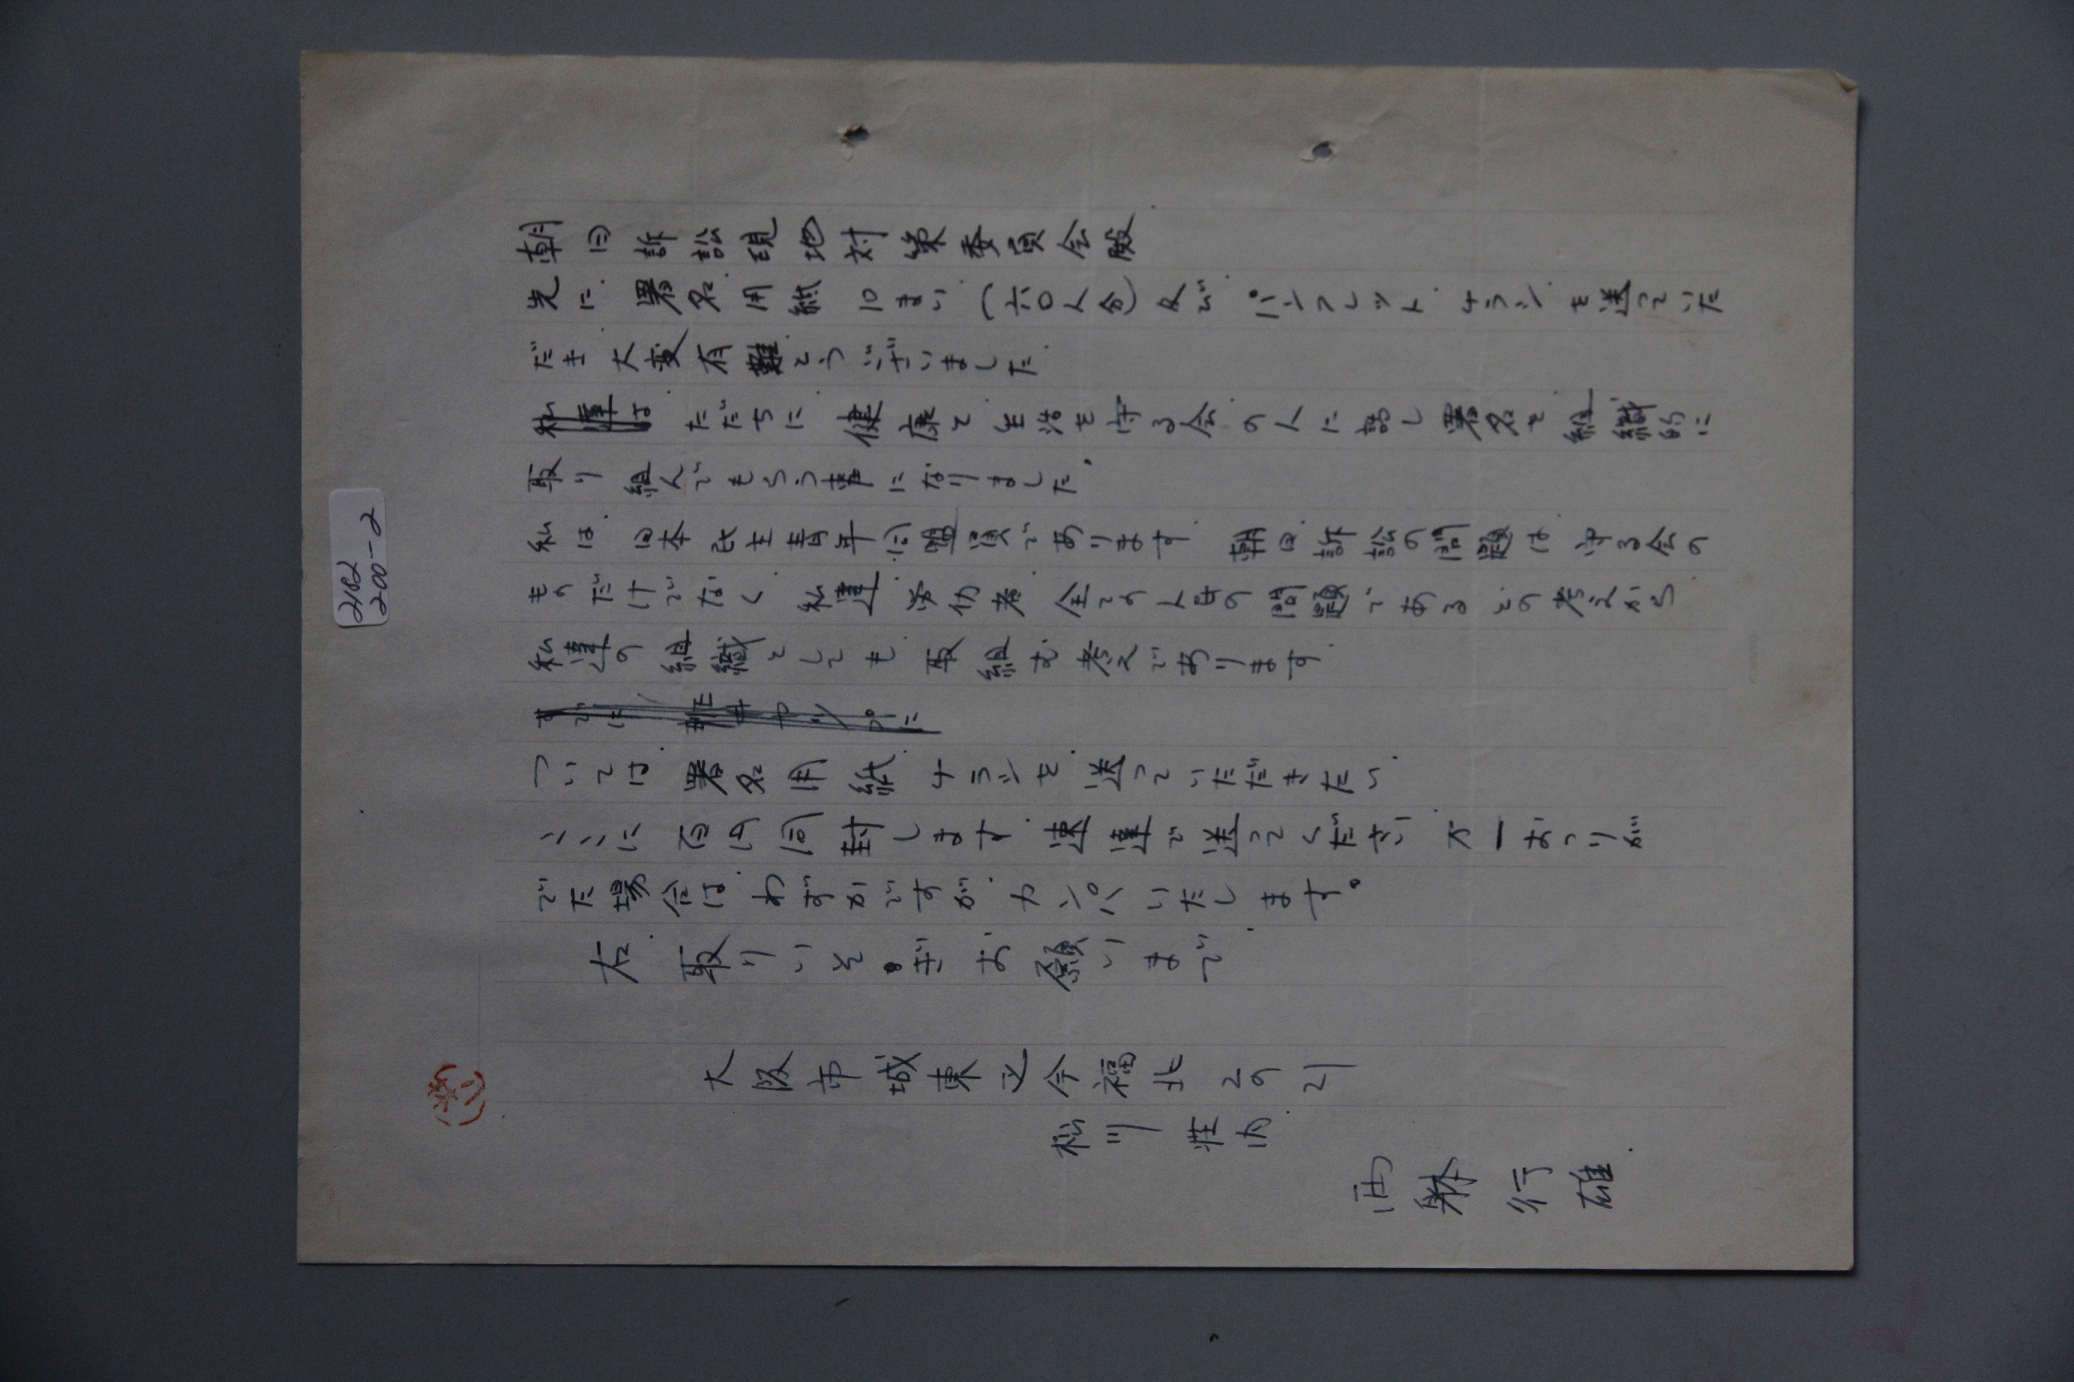 2182
200-2
朝日訴訟現地対策委員会殿
先に 署名用紙 10まい(六〇人分)及び パンフレット チラシを送っていた
だき 大変有難とうございました
私達は ただちに 健康と生活を守る会の人に話し 署名を組織的に
取り組んでもらう事になりました
私は 日本民主青年同盟員であります 朝日訴訟の問題は 守る会の
ものだけでなく 私達 労仂者 全ての人民の問題であるとの考えから
私達の組織としても 取組む考えであります
すでに
ついては 署名用紙 チラシを 送っていただきたい
ここに 百円同封します 速達で送ってください 万一おつりが
でた場合は わずかですが カンパいたします。
右 取りいそぎお願いまで
大阪市城東区今福北2の21
松川荘内
西 行雄